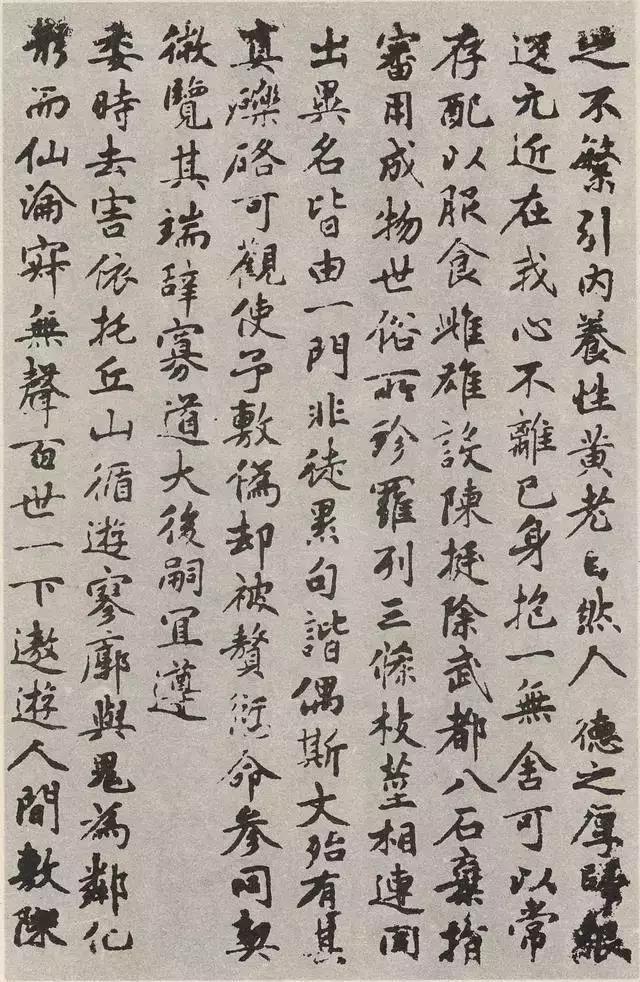 不繁引內養性黃老自然人德之厚歸根
返元近在我心不離己身抱一無舍可以常
存配以服食雌雄設陳挺除武都八石棄捐
審用成物世俗所珍羅列三條枝莖相連同
出異名皆由一門非徒累句諧偶斯文殆有其
真礫硌可觀使予敷偽却被贅愆命參同契
微覽其端辭寡道大後嗣宜遵
委時去害依托丘山循遊寥廓與鬼為鄰化
形而仙淪寂無聲百世一下遨遊人間敷陳